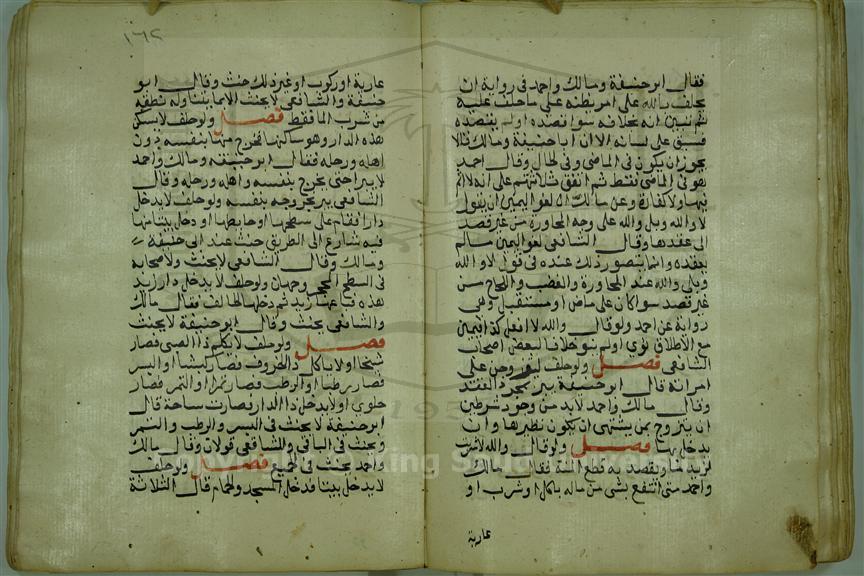 فقال ابو حنيفة ومالك واحمد فى رواية ان
يحلف بالله على امر يظنه على ما حلف عليه
ثم تبين انه بخلافه سوا قصده او لم يقصده
فسبق على لسانه الا ان ابا حنيفة ومالك قالا
يجوز ان يكون فى الماضى وفى الحال وقال احمد
هو فى الماضى فقط ثم اتفق ثلاثتهم على انه لا اثم
فيها ولا كفارة وعن مالك ان لغو اليمين ان يقول
لا والله وبلى والله على وجه المحاورة من غير قصد
الى عقدها وقال الشافعى لغو اليمين ما لم
يعقده وانما يتصور ذلك عنده فى قول لا والله
وبلى والله عند المحاورة والغضب واللجاج من
غير قصد سوا كان على ماض او مستقبل وهى
رواية عن احمد ولو قال والله لا افعل كذا فيمين
مع الاطلاق نوى او لم ينو خلافا لبعض اصحاب
الشافعى فصل ولو حلف ليتزوجن على
امراته قال ابو حنيفة يبر بمجرد العقد
وقال مالك واحمد لا بد من وجود شرطين
ان يتزوج بمن يشبهها ان يكون نظيرها وان
يدخل بها فصل ولو قال والله لا شربت
لزيد ما يقصد به قطع المنة فقال مالك
واحمد متى انتفع بشى من ماله باكل او شرب او
عارية
١٦٢
عارية او ركوب او غير ذلك حنث وقال ابو
حنيفة والشافعى لا يحنث الا بما يتناوله نطقه
من شرب الما فقط فصل ولو حلف لا يسكن
هذه الدار وهو ساكنها فخرج منها بنفسه دون
اهله ورحله فقال ابو حنيفة ومالك واحمد
لا يبر حتى يخرج بنفسه واهله ورحله وقال
الشافعى يبر بخروجه بنفسه ولو حلف لا يدخل
دارا فقام على سطحها او حايطها او دخل بيتا منها
فيه شارع الى الطريق حنث عند ابى حنيفة
ومالك وقال الشافعى لا يحنث ولاصحابه
فى السطح المحجر وجهان ولو حلف لا يدخل دار زيد
هذه فباعها زيد ثم دخلها الحالف فقال مالك
والشافعى يحنث وقال ابو حنيفة لا يحنث
فصل ولو حلف لا يكلم ذا الصبى فصار
شيخا او لا ياكل ذا الخروف فصار كبشا او البسر
فصار رطبا او الرطب فصار تمرا او التمر فصار
حلوى او لا يدخل ذا الدار فصارت ساحة قال
ابو حنيفة لا يحنث فى البسر والرطب والتمر
ويحنث فى الباقى والشافعى قولان وقال مالك
واحمد يحنث فى الجميع فصل ولو حلف
لا يدخل بيتا فدخل المسجد والحمام قال الثلاثة